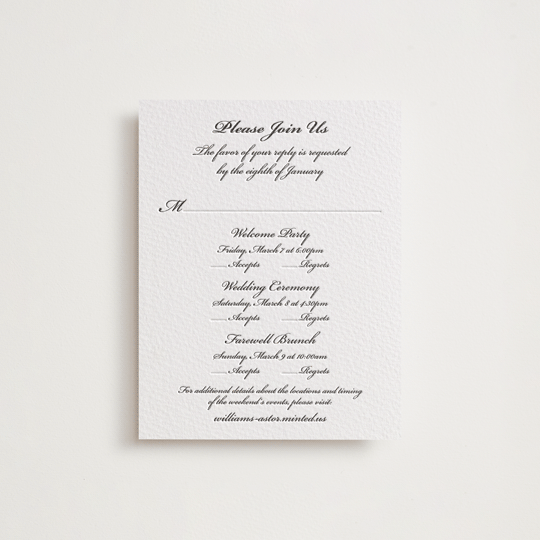 Please Join Us
The favor of your reply is requested
by the eighth of January
M
Welcome Party
Friday, March 7 at 6:00pm
Accepts Regrets
Wedding Ceremony
Saturday, March 8 at 4:30pm
Accepts Regrets
Farewell Brunch
Sunday, March 9 at 10:00am
Accepts Regrets
For additional details about the locations and timing
of the weekend's events, please visit:
williams-astor.minted.us